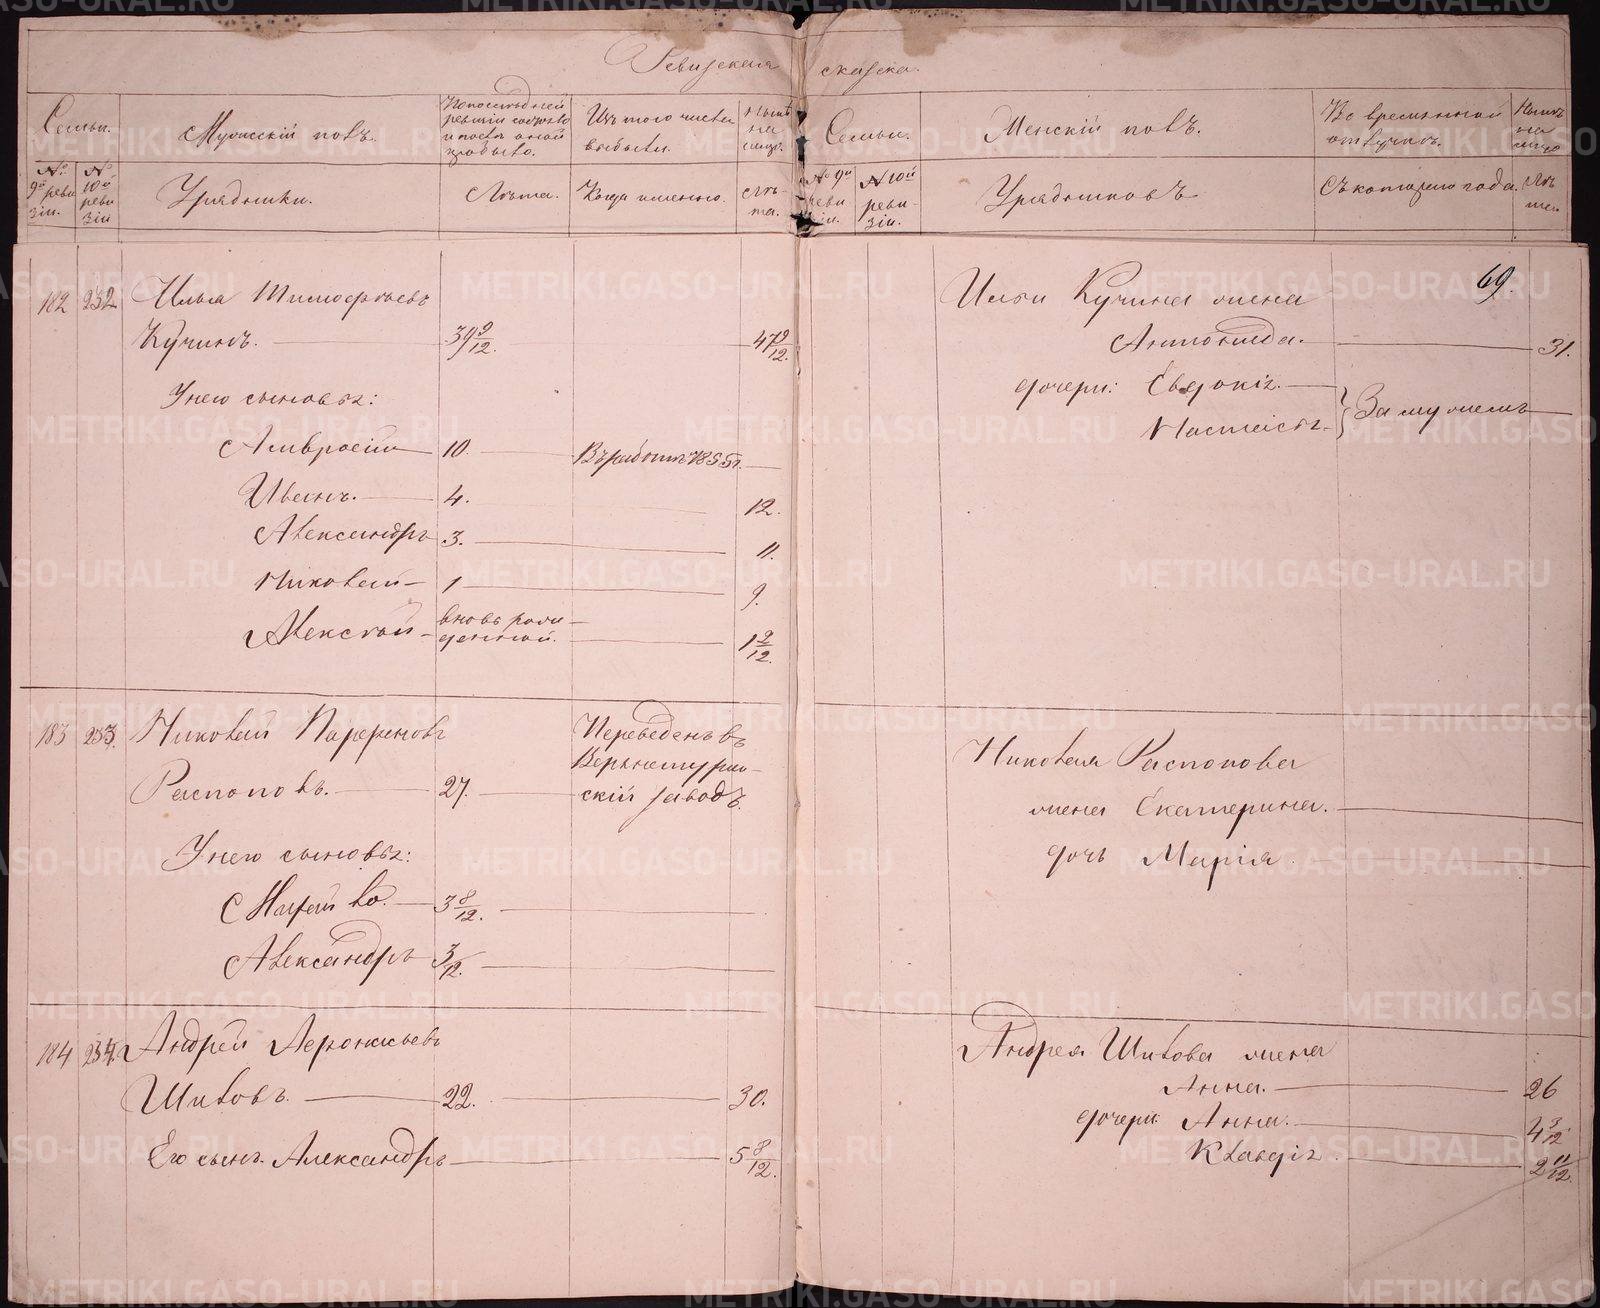 Ревизская сказка.
Семьи.
Мужескій полъ.
По последней ревизіи состояло и после оной прибыло.
Изъ того числа выбыли.
Ныне на лицо.
Семьи.
Женскій полъ.
Во временной отлучкѣ.
Ныне на лицо
№ 9й ревизіи.
№ 10й ревизіи
Урядники.
Лѣта.
Когда именно.
Лѣта.
№ 9й ревизіи.
№ 10й ревизіи.
Урядниковъ
Съ котораго года.
Лѣта
69.
182 232 Илья Тимофѣевъ
Кучинъ. 39 9/12. 47 9/12.
У него сыновья:
Амвросій 10. Въ работѣ 1855 г.
Иванъ. 4. 12.
Александръ 3. 11.
Николай 1 9.
Алексѣй вновь рожденной. 1 9/12.
Ильи Кучина жена
31.
дочери: Евдокія.
Настасья
За мужемъ
183 233. Николай Парфеновъ
Распоповъ. 27. Переведенъ въ Верхнетуринскій заводъ.
У него сыновья:
3 8/12.
Александръ 3/12.
Николая Распопова
жена Екатерина.
дочь Марія.
184 234. Андрей
Шиловъ. 22. 30.
Его сынъ Александръ 5 8/12.
Андрея Шилова жена
Анна. 26
дочери: Анна. 4 3/12.
Клавдія. 2 11/12.
METRIKI.GASO-URAL.RU